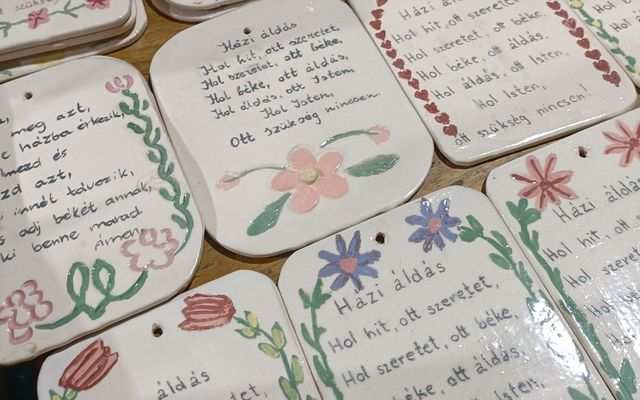 szükség
Házi áldás
Hol hit, ott szeretet,
Hol szeretet, ott béke,
Hol béke, ott áldás,
Hol áldás, ott Isten,
Hol Isten,
Ott szükség nincsen.
Házi áldás
Hol hit, ott szeretet
Hol szeretet, ott béke,
Hol béke, ott áldás.
Hol áldás, ott Isten,
Hol Isten,
ott szükség nincsen!
meg azt,
e házba érkezik,
és
azt,
innét távozik,
adj békét annak,
ki benne marad
Ámen
Házi áldás
Hol hit, ott szeretet,
Hol szeretet, ott béke,
béke, ott áldás,
ott Isten,
Házi áld
Hol hit, ott
Hol szeretet
Hol
áldás